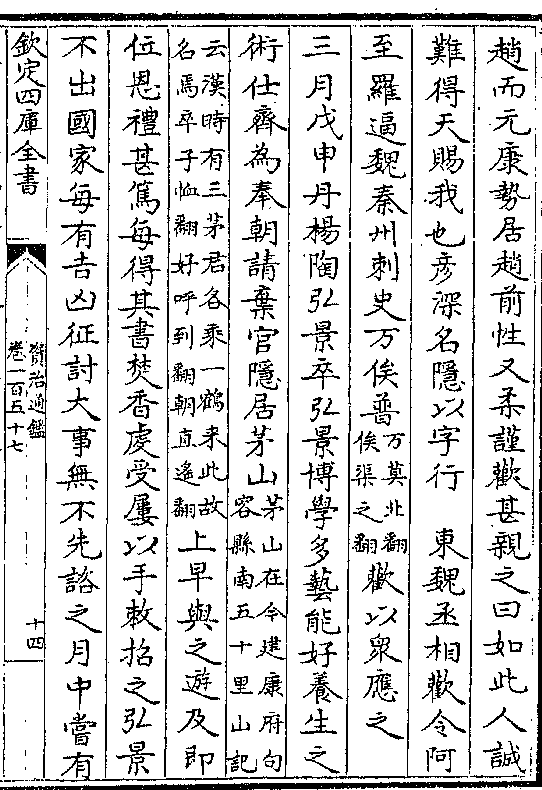 趙而元康勢居趙前性又柔謹歡甚親之曰如此人誠
難得天賜我也彦深名隱以字行　東魏丞相歡令阿
至羅逼魏秦州刺史万俟普万莫北翻俟渠之翻歡以衆應之
三月戊申丹楊陶弘景卒弘景博學多藝能好養生之
術仕齊為奉朝請棄官隱居茅山茅山在今建康府句容縣南五十里山記
云漢時有三茅君各乘一鶴来此故名焉卒子恤翻好呼到翻朝直遙翻上早與之遊及即
位恩禮甚篤每得其書焚香虔受屢以手敕招之弘景
不出國家每有吉凶征討大事無不先諮之月中嘗有
欽定四庫全書
資治通鑑
卷一百五十七
十四